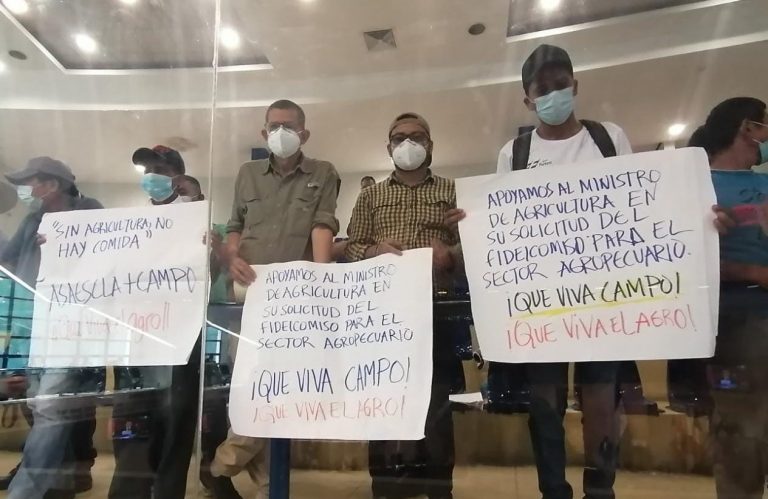 "SIN AGRICULTURA, NO
HAY COMIDA"
ASAESCLA + CAMPO
¡Que viva el agro!!
APOYAMOS AL MINISTRO
DE AGRICULTURA EN
SU SOLICITUD DEL
FIDEICOMISO PARA EL
SECTOR AGROPECUARIO
¡QUE VIVA CAMPO!
¡QUE VIVA EL AGRO!
APOYAMOS AL MINISTRO
DE AGRICULTURA EN
SU SOLICITUD DEL
FIDEICOMISO PARA EL
SECTOR AGROPECUARIO.
¡QUE VIVA CAMPO!
¡QUE VIVA EL AGRO!